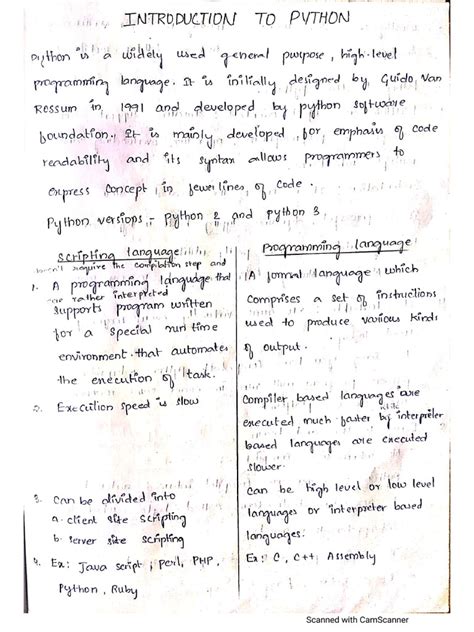 INTRODUCTION TO PYTHON
Python is a widely used general purpose, high-level
programming language. It is initially designed by Guido Van
Rossum in 1991 and developed by python software
foundation. It is mainly developed for emphasis of code
readability and its syntax allows programmers to
express concept in fewer lines of code.
Python versions - python 2 and python 3
Scripting language
doesn't require the compilation step and
are rather interpreted
1. A programming language that
supports program written
for a special run time
environment that automates
the execution of task.
2. Execution speed is slow
3. Can be divided into
a. client site scripting
b. server site scripting
4. Ex: Java script, perl, PHP,
Python, Ruby
Programming language
A formal language which
comprises a set of instructions
used to produce various kinds
of output.
Compiler based languages are
executed much faster while by interpreter
based languages are executed
slower.
Can be high level or low level
languages or interpreter based
languages.
Ex: C, C++, Assembly
Scanned with CamScanner